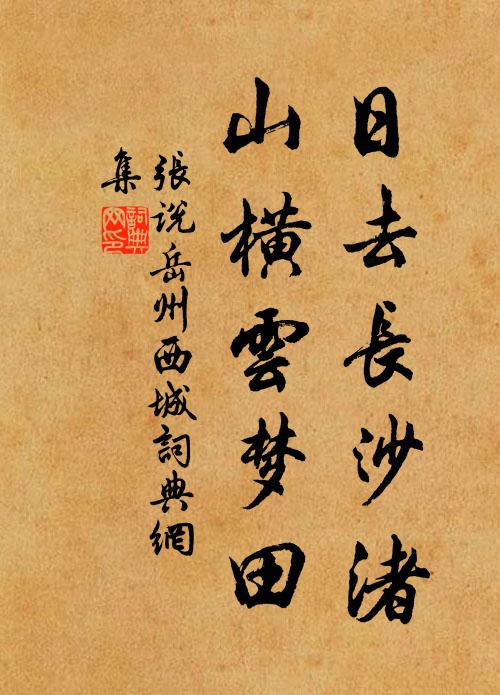 日去長沙渚
山橫雲梦田
張说岳州西城詞典網
集
詞典网印